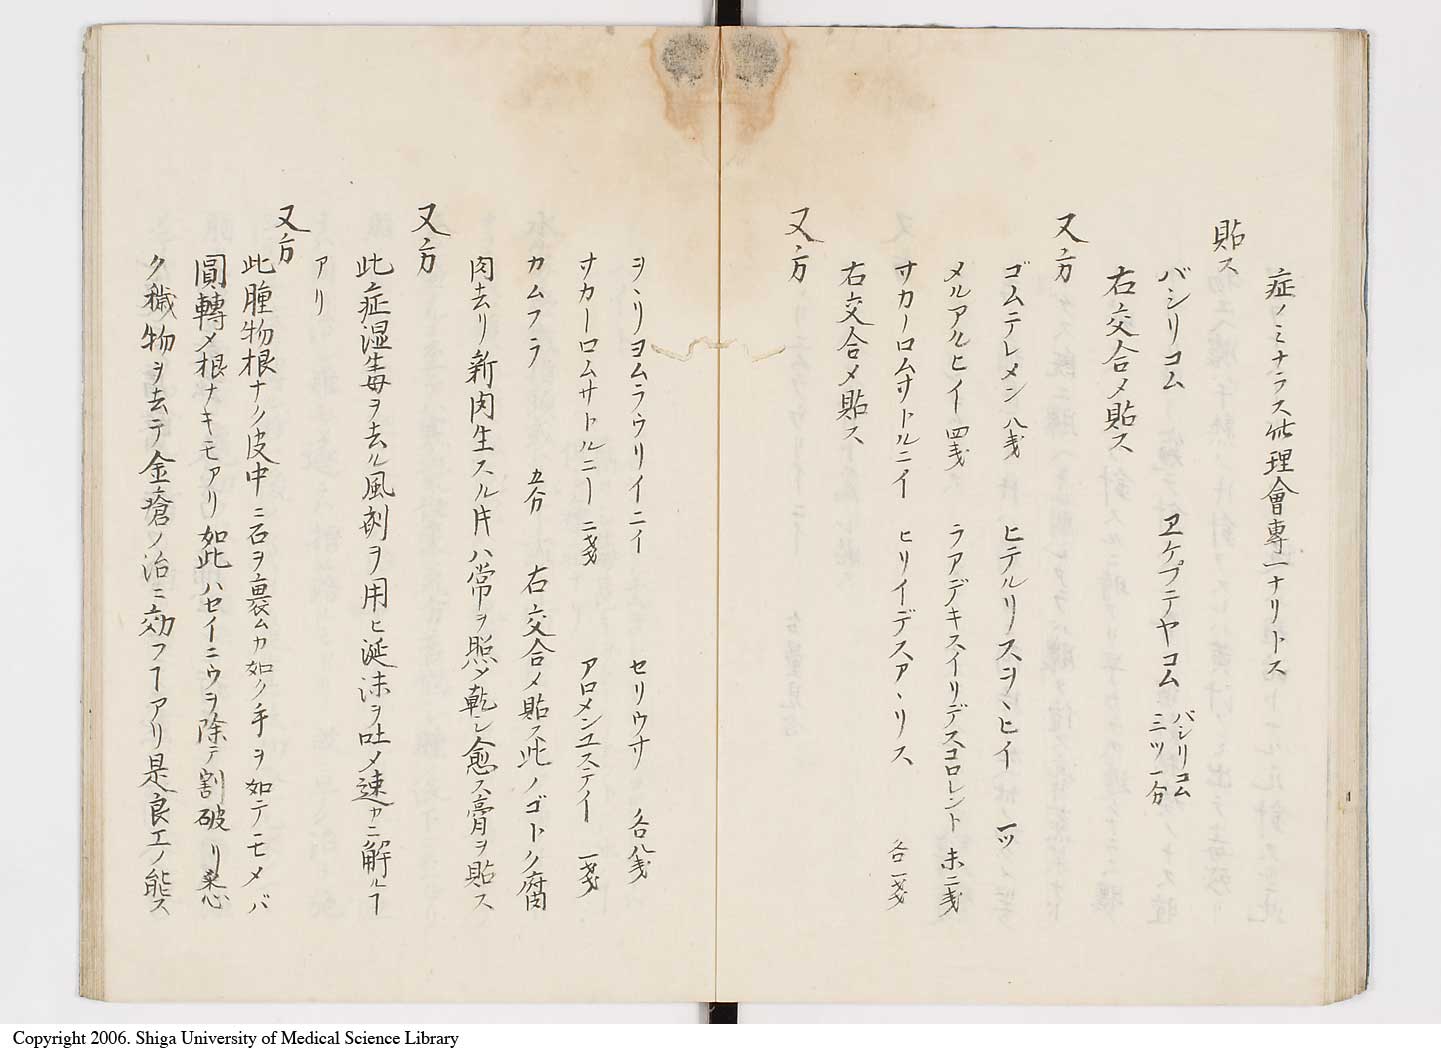 症ノミナラス此理會専一ナリトス
貼ス
バシリコム ヱケプテヤコム バシリコム三ツ一分
右交合〆貼ス
又方
ゴムテレメン 八戔 ヒテルリノスヲヽヒイ 一ツ
メルアルヒイ 四戔 ラアデキスイリデスコロレント 末二戔
サカーロムサトルニイ ヒリイデスアヽリス 各一戔
右交合〆貼ス
又方
ヲヽリヨムラウリイニイ セリウサ 各八戔
サカーロムサトルニー 二戔 アロメンユステイ 一戔
カムフラ 五分 右交合〆貼ス此ノゴトク腐
肉去リ新肉生スル片ハ常ヲ照〆乾シ愈ス膏ヲ貼ス
又方
此症湿毒ヲ去ル風剤ヲ用ヒ涎沫ヲ吐〆速カニ解ルヿ
アリ
又方
此腫物根ナク皮中ニ石ヲ裹ムカ如ク手ヲ如テニモメバ
圓轉〆根ナキモアリ如此ハセイニウヲ除テ割破リ悉
ク穢物ヲ去テ金瘡ノ治ニ効フヿアリ是良工ノ能ス